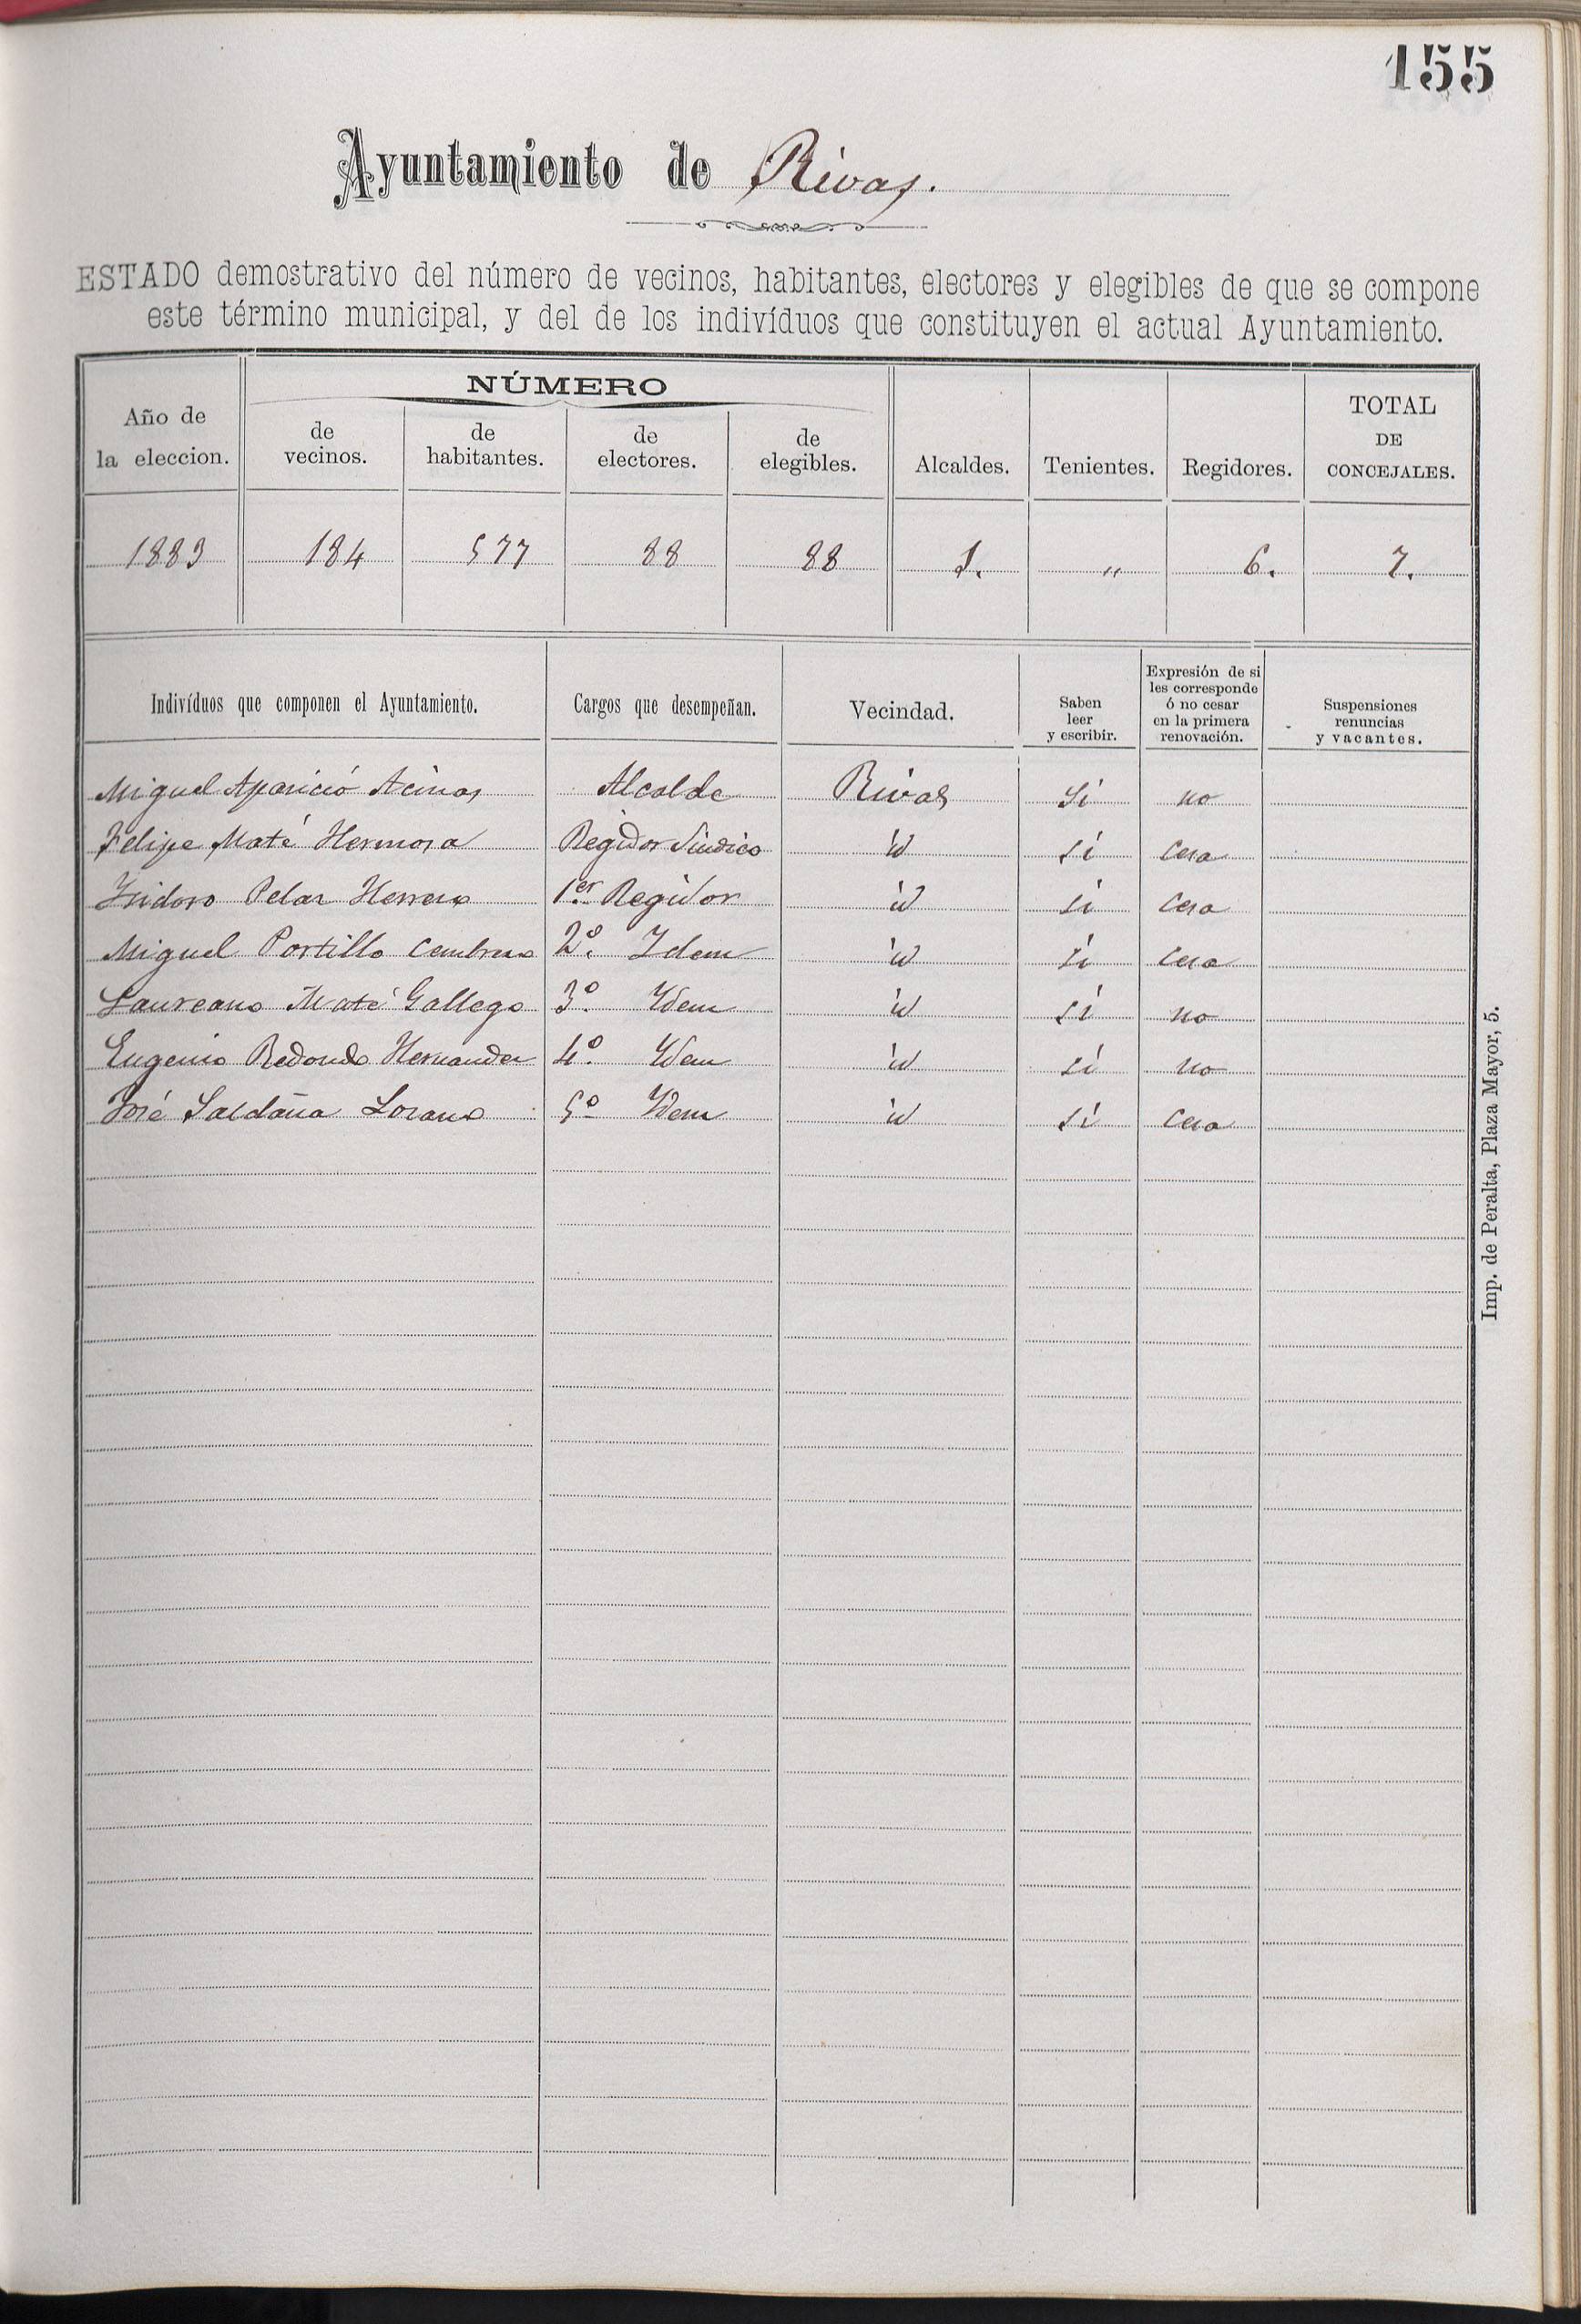 155
Ayuntamiento de Rivas.
ESTADO demostrativo del número de vecinos, habitantes, electores y elegibles de que se compone
este término municipal, y del de los indivíduos que constituyen el actual Ayuntamiento.
Año de la eleccion. NÚMERO de vecinos. de habitantes. de electores. de elegibles. Alcaldes. Tenientes. Regidores. TOTAL DE CONCEJALES.
1883 184 577 88 88 1. " 6. 7.
Indivíduos que componen el Ayuntamiento. Cargos que desempeñan. Vecindad. Saben leer y escribir. Expresión de si les corresponde ó no cesar en la primera renovación. Suspensiones renuncias y vacantes.
Miguel Aparicio Acinas Alcalde Rivas Si no
Felipe Maté Hermosa Regidor Sindico id si cesa
Ysidoro Pelaz Herrero 1er. Regidor id si cesa
Miguel Portillo Cembrero 2º. Idem id si cesa
Laureano Maté Gallego 3º. Ydem id si no
Eugenio Redondo Hernandez 4º. Ydem id si no
José Saldaña Lozano 5º Ydem id si cesa
Imp. de Peralta, Plaza Mayor, 5.